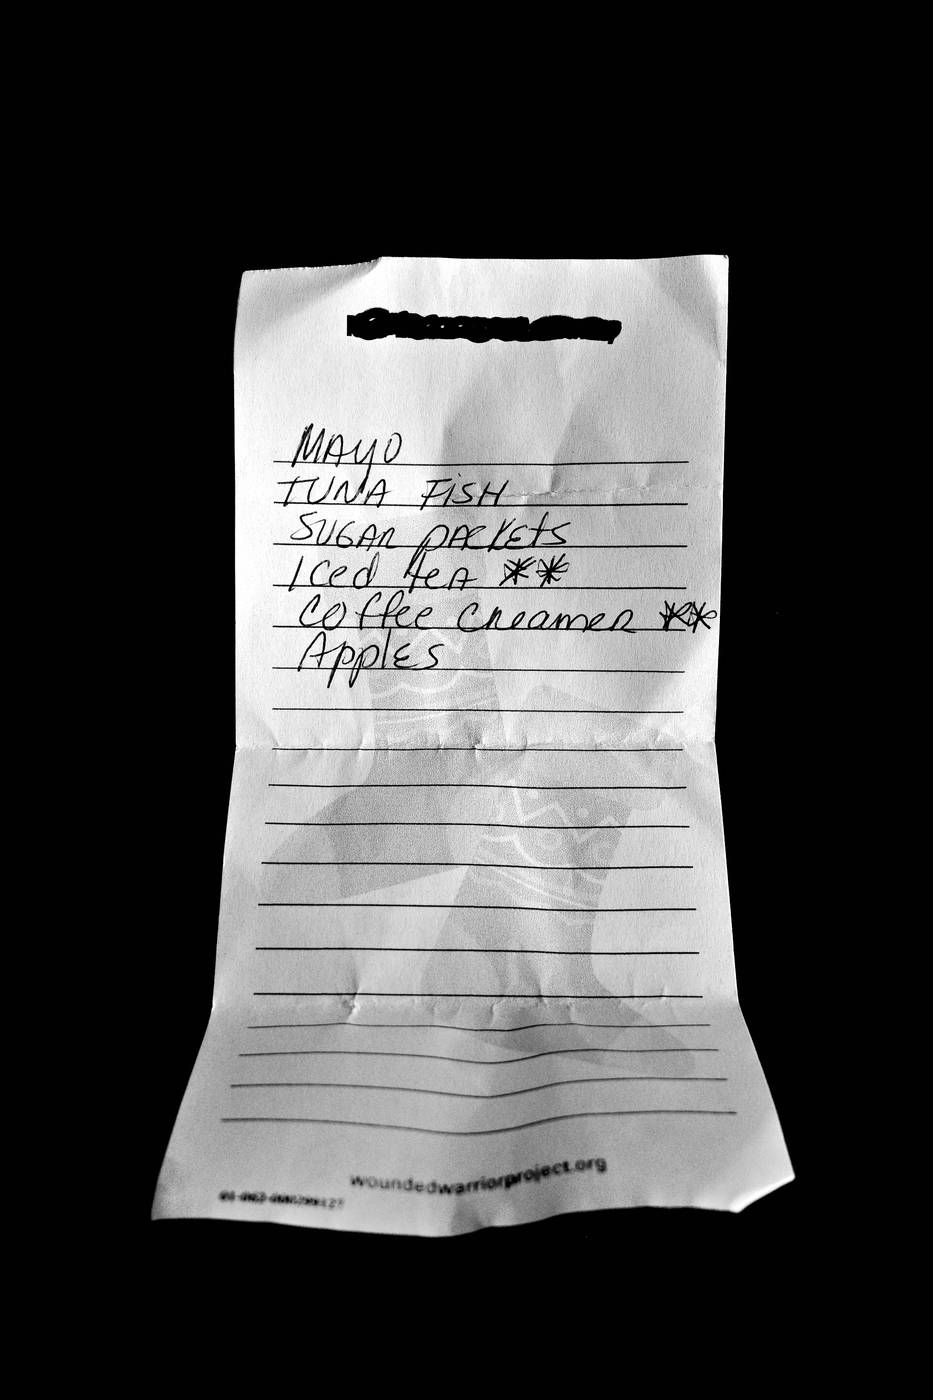 MAYO
TUNA FISH
SUGAR PACKETS
Iced tea **
Coffee Creamer **
Apples
woundedwarriorproject.org